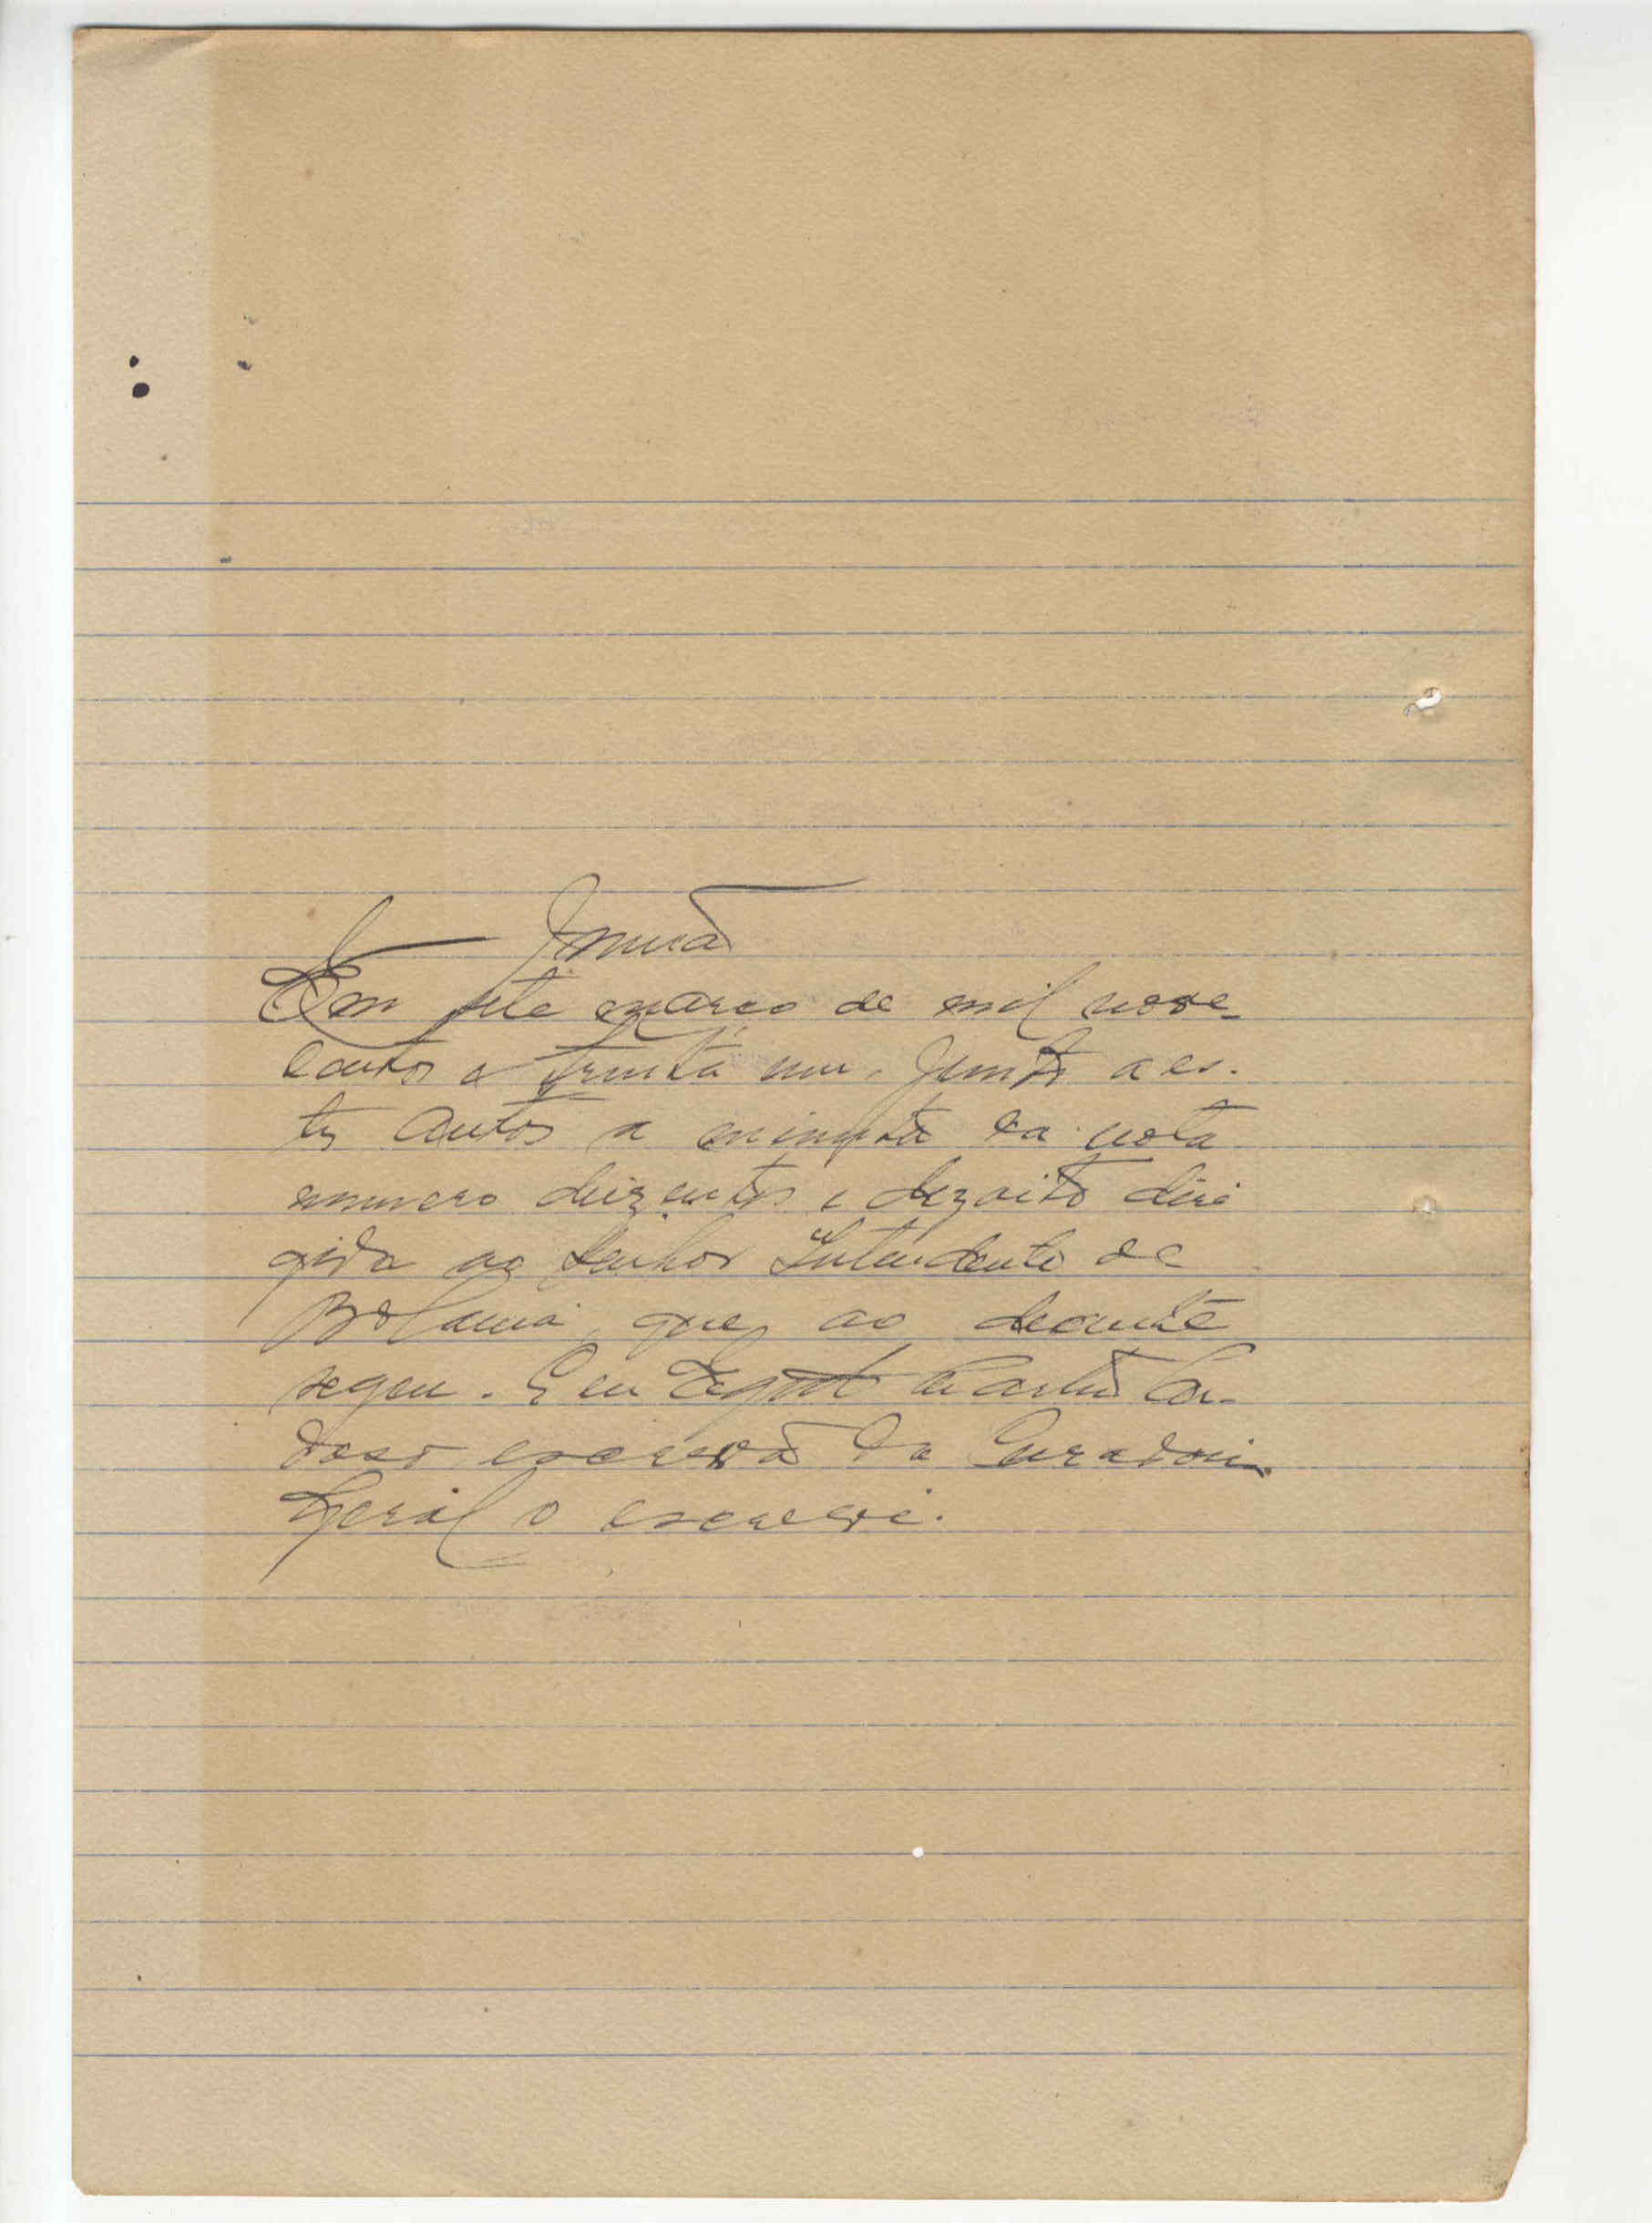 Juntada
Em sete março de mil nove-
centos e trinta um. Junto a es-
tes autos a minuta da nota
numero duzentos e dezoito diri
gida ao Senhor Intendente de
Bolama, que ao deante
segue. E eu Cardoso
escrivão da Curadoria
Geral o escrevi.